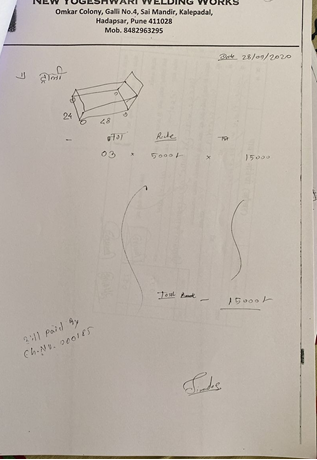 NEW YOGESHWARI WELDING WORKS
Omkar Colony, Galli No.4, Sai Mandir, Kalepadal,
Hadapsar, Pune 411028
Mob. 8482963295
Date 28/09/2020
1)
24
28
नग Rate
03 × 5000/- × 15000
Total 15000/-
Bill paid by
Ch. No. 000185